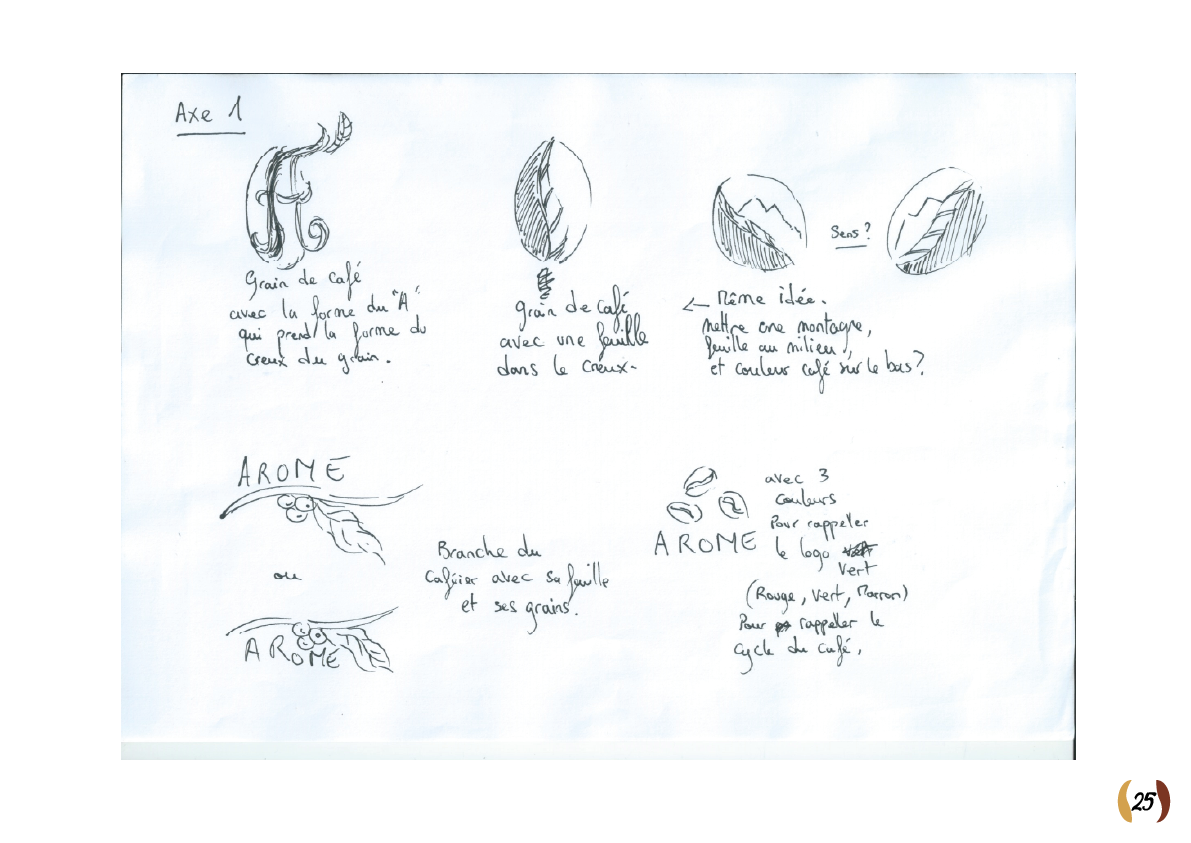 Axe 1
Grain de café
avec la forme du "A"
qui prend la forme du
creux du grain.
grain de café
avec une feuille
dans le creux.
Sens?
← Même idée.
mettre une montagne,
feuille au milieu,
et couleur café sur le bas?
AROME
ou
AROME
Branche du
caféier avec sa feuille
et ses grains.
AROME
avec 3
couleurs
Pour rappeler
le logo
vert
(Rouge, Vert, Marron)
Pour rappeler le
cycle du café,
25